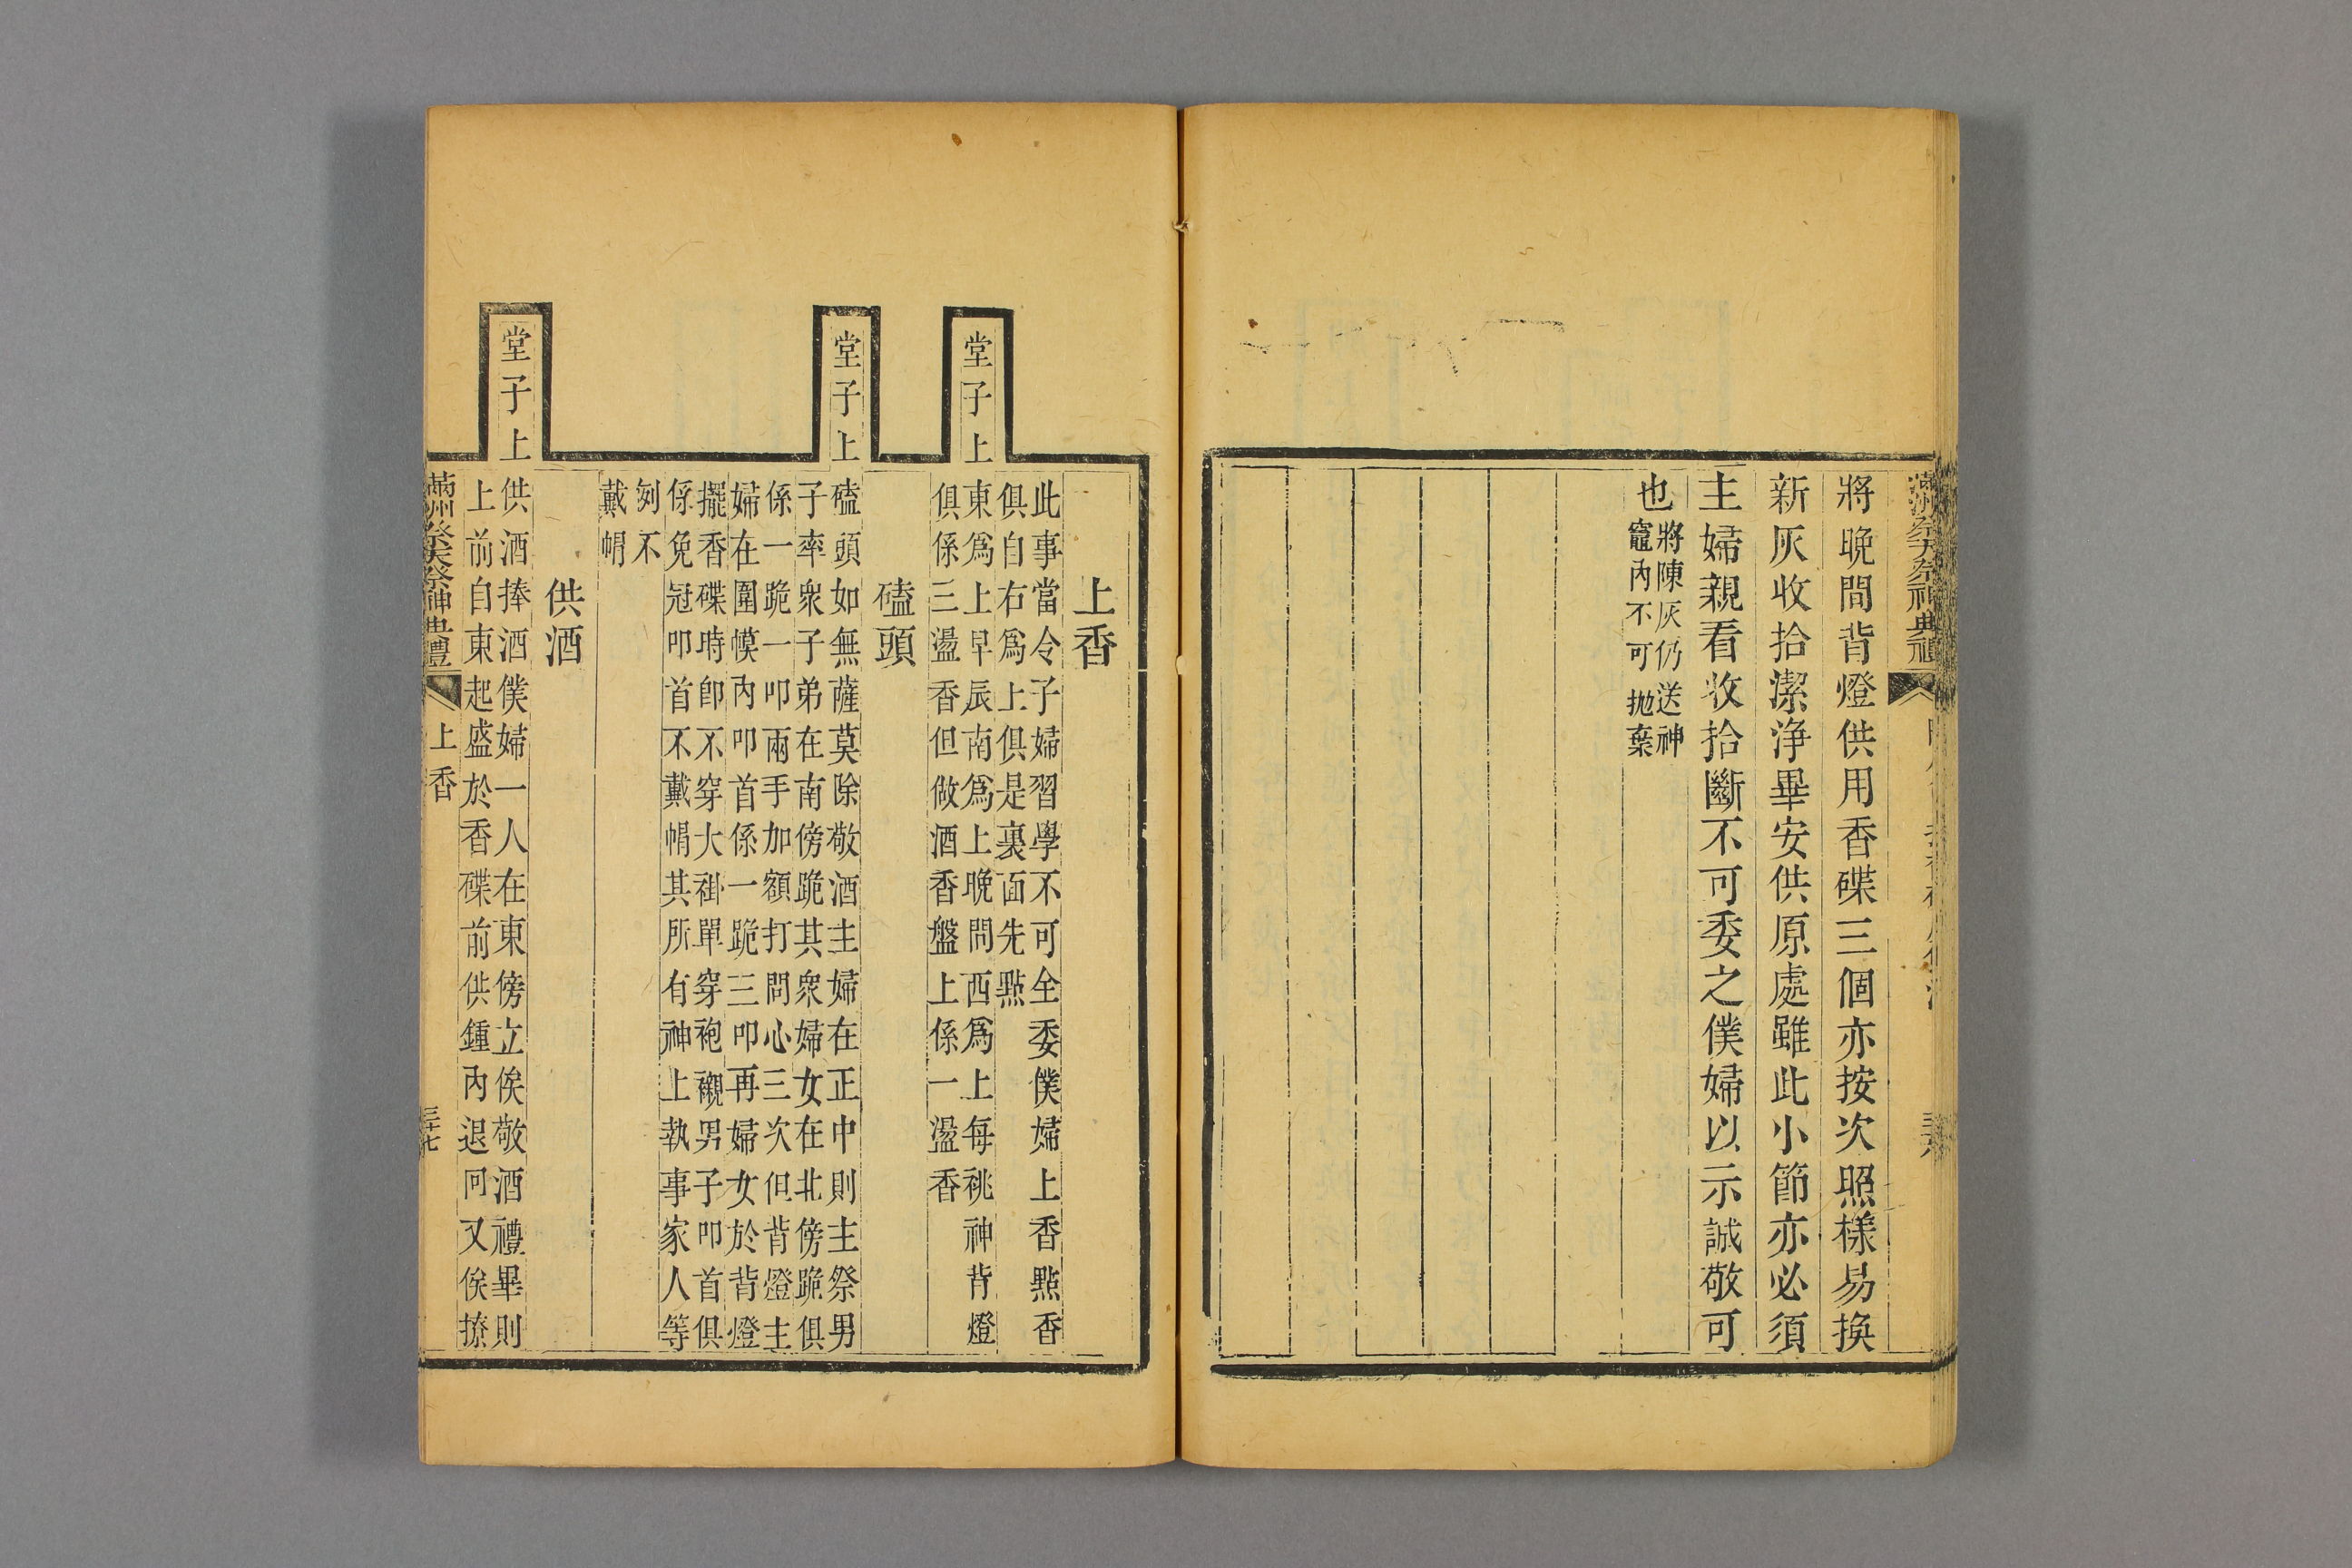 滿洲祭天祭神典禮
將晚間背燈供用香碟三個亦按次照樣易換
新灰收拾潔净畢安供原處雖此小節亦必須
主婦親看收拾斷不可委之僕婦以示誠敬可
也
將陳灰仍送神
竈內不可抛棄
上香
此事當令子婦習學不可全委僕婦上香點香
俱自右爲上俱是裏面先點
堂子上
東爲上早辰南爲上晚間西爲上每祧神背燈
俱係三盪香但做酒香盤上係一盪香
磕頭
堂子上
磕頭如無薩莫除敬酒主婦在正中則主祭男
子率衆子弟在南傍跪其衆婦女在北傍跪俱
係一跪一叩兩手加額打問心三次但背燈主
婦在圍幙內叩首係一跪三叩再婦女於背燈
擺香碟時卽不穿大褂單穿袍襯男子叩首俱
係免冠叩首不戴帽其所有神上執事家人等
刎不
戴帽
供酒
堂子上
供酒捧酒僕婦一人在東傍立俟敬酒禮畢則
上前自東起盛於香碟前供鍾內退回又俟撩
滿洲祭天祭神典禮
上香
三十七